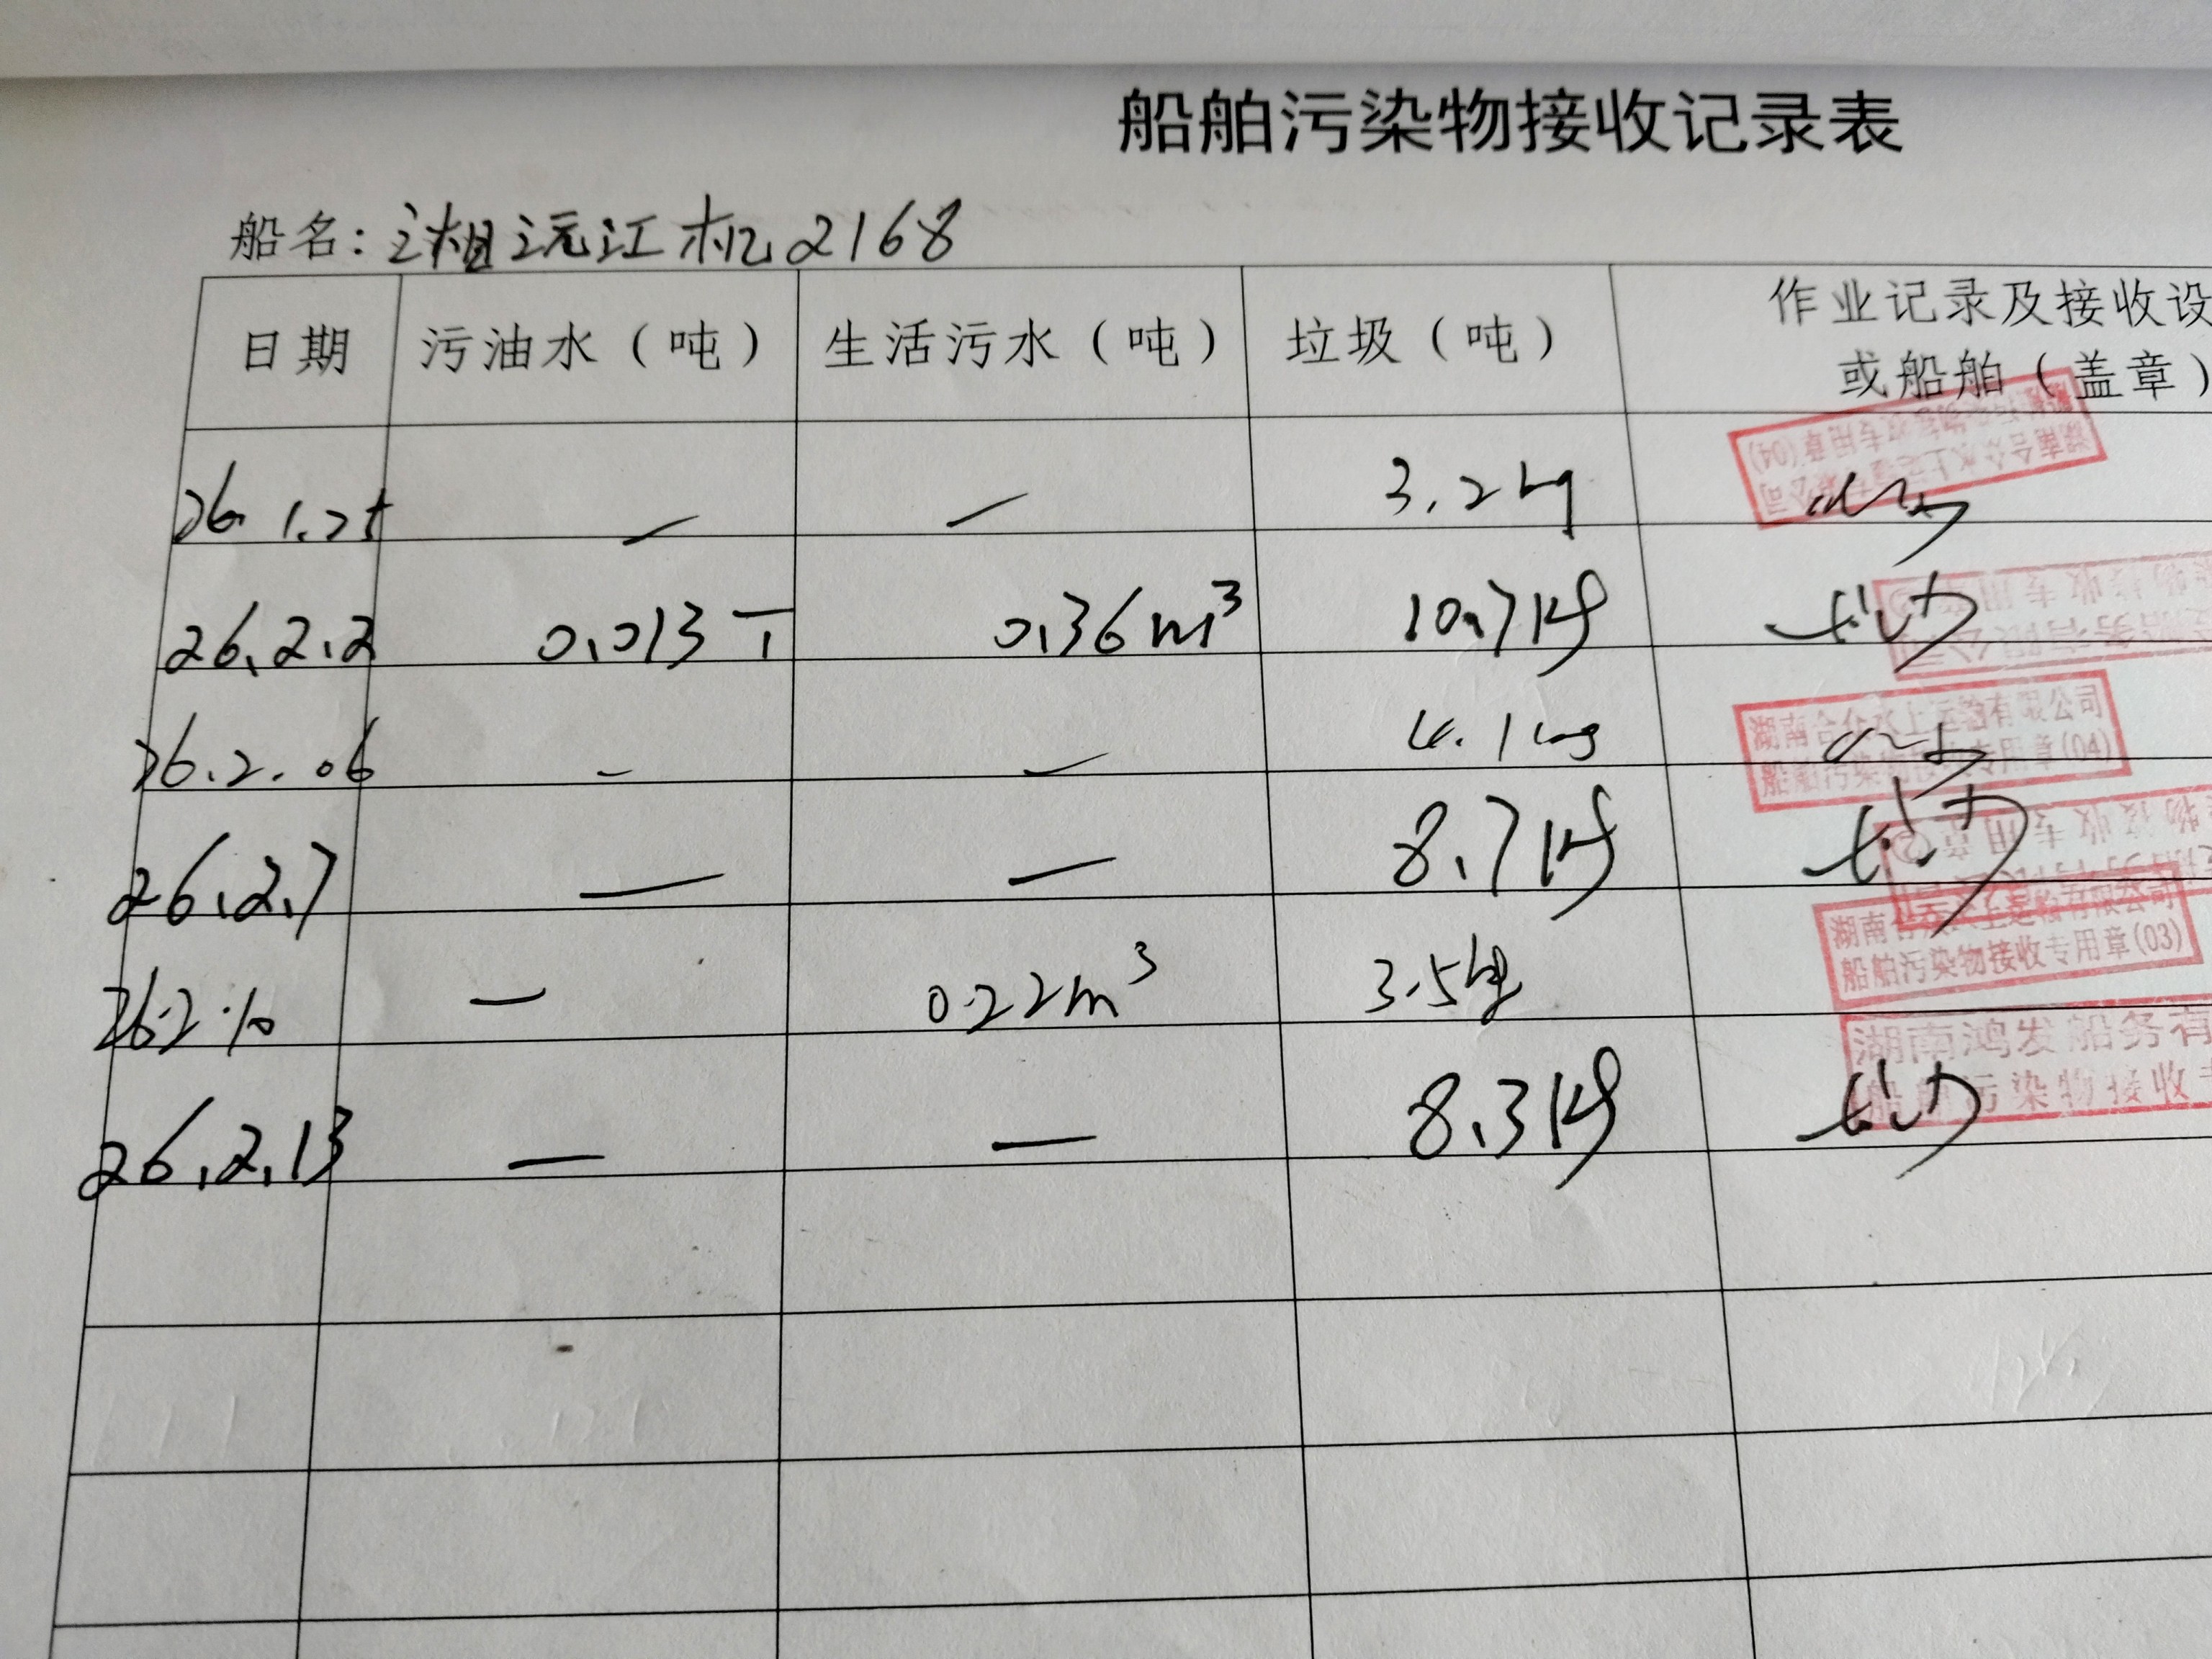 船舶污染物接收记录表
船名：湘沅江机2168
日期 污油水（吨） 生活污水（吨） 垃圾（吨） 作业记录及接收设
或船舶（盖章）
26.1.25 — — 3.2kg
26.2.2 0.013T 0.36m³ 10.7kg
26.2.06 — — 4.1kg
湖南合 水上运输有限公司
船舶污染物接收专用章(04)
26.2.7 — — 8.7kg
湖南 水上运输有限公司
船舶污染物接收专用章(03)
26.2.10 — 0.22m³ 3.5kg
湖南鸿发船务有
船舶污染物接收专
26.2.13 — — 8.3kg